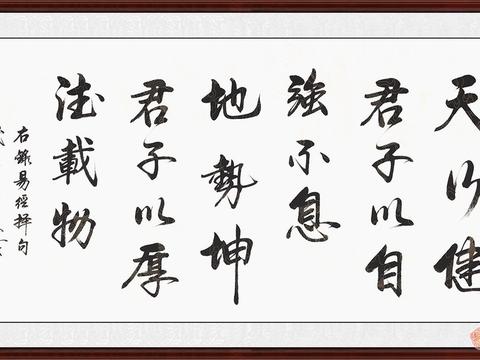 天行健
君子以自
強不息
地勢坤
君子以厚
德載物
右錄易經擇句